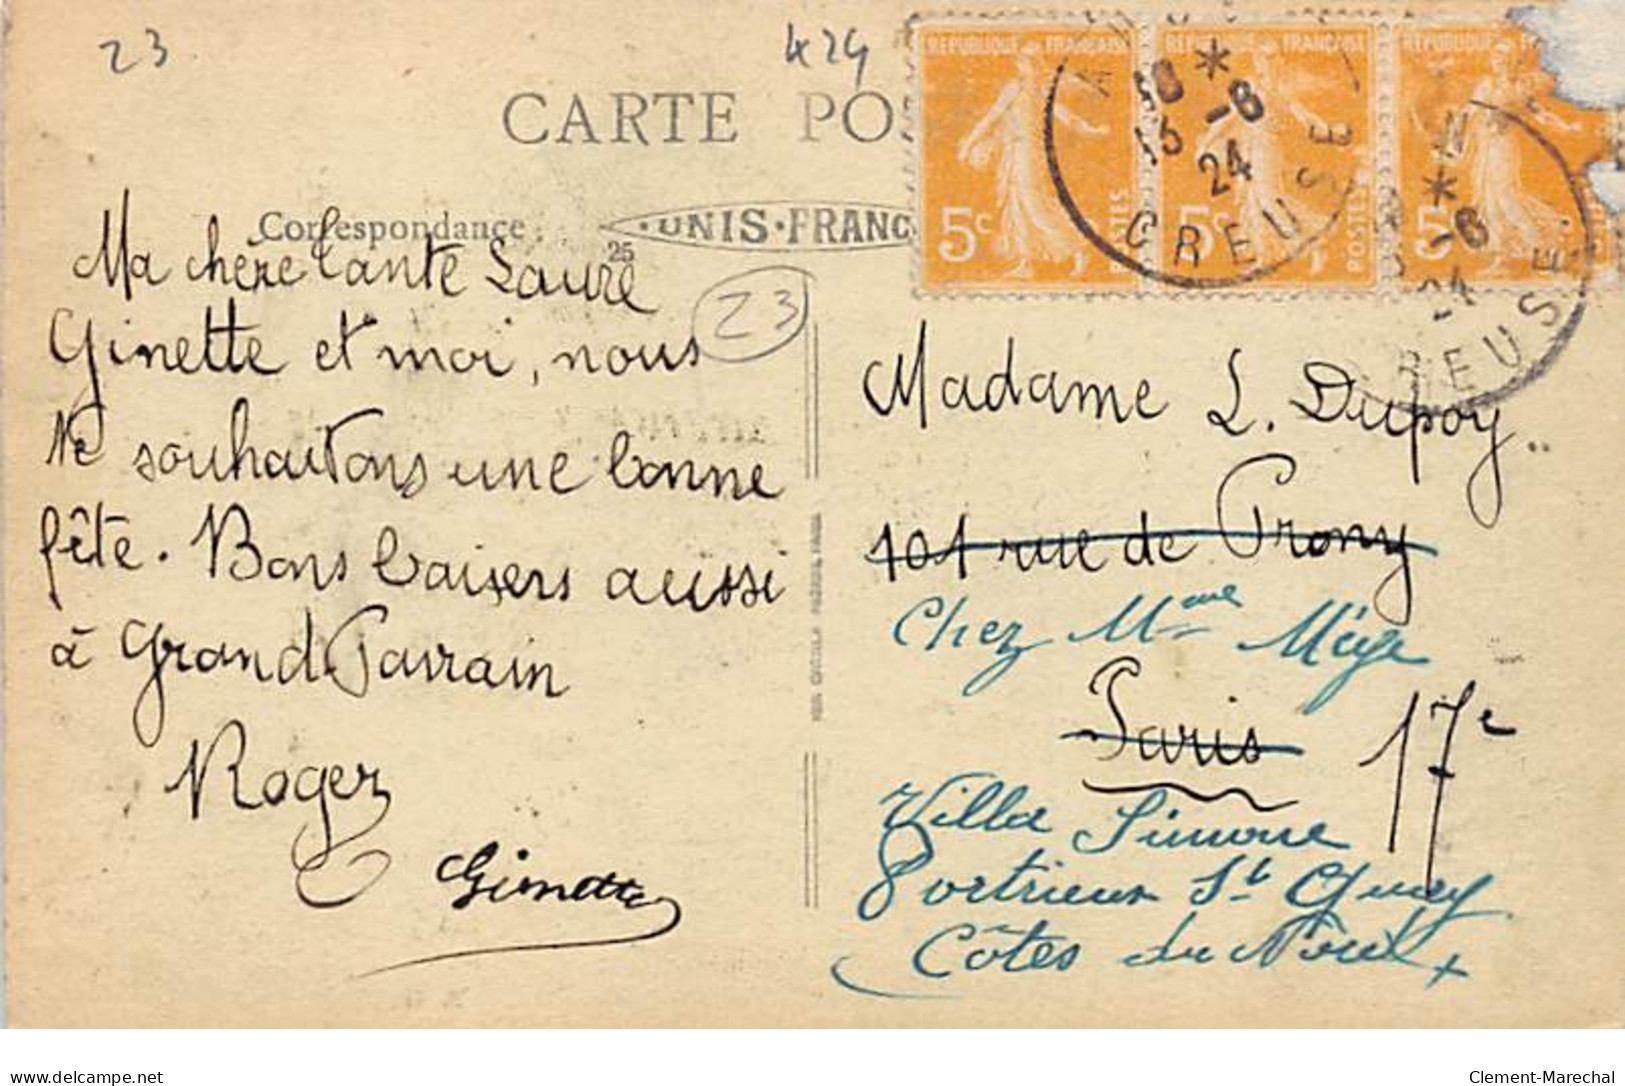 23
424
CARTE POS
RÉPUBLIQUE FRANÇAISE
RÉPUBLIQUE FRANÇAISE
5c POSTES
5c POSTES
5c
15 -8
24
CREUSE
-8
24
REUSE
Correspondance
UNIS-FRANC
25
23
Ma chère tante Laure
Ginette et moi, nous
te souhaitons une bonne
fête. Bons baisers aussi
à Grand Parrain
Roger
Ginette
Madame L. Dupoy
101 rue de Prony
Chez Mme Mège
Paris 17e
Villa Simone
Portrieux St Quay
Côtes du Nord
Clement-Marechal
www.delcampe.net